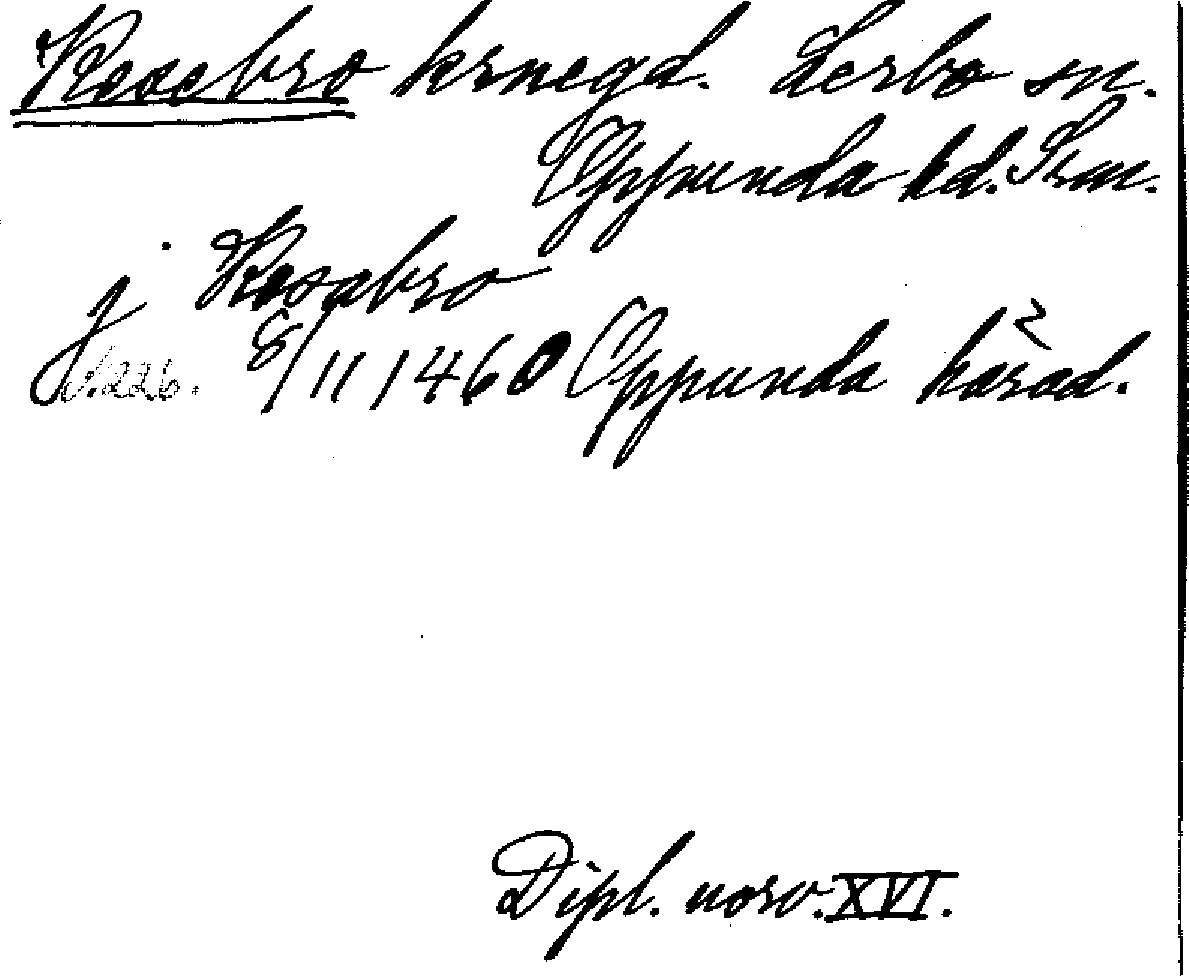 Resebro krnegd. Lerbo sn.
Oppunda hd. Srm.
j Resabro
s. 226. 8/11 1460 Oppunda härad.
Dipl. norv. XVI.